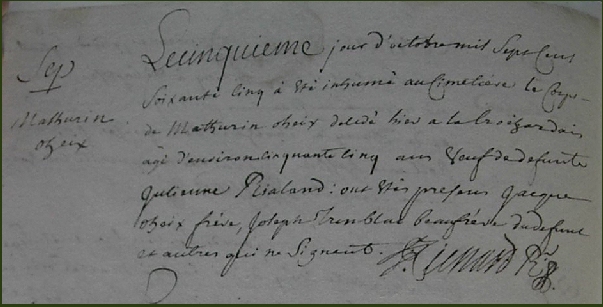 Sep
Mathurin
oheix
Lecinquieme jour d'octobre mil Sept Cens
Soixante Cinq à été inhumé au Cimetiere le Corps
de Mathurin oheix decedé hier a la
agé d'environ cinquante cinq ans Veuf de defunte
Julienne Rialand : ont étés presens Jacque
oheix frére, Joseph beaufrére du defunt
et autres qui ne Signent.